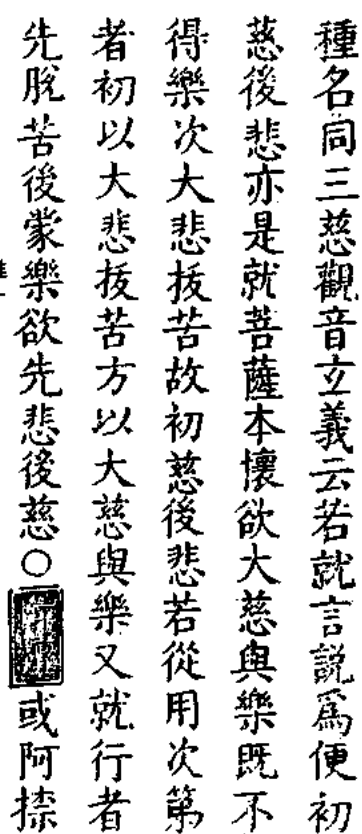 種名同三慈觀音立義云若就言說爲便初
慈後悲亦是就菩薩本懷欲大慈與樂既不
得樂次大悲拔苦故初慈後悲若從用次第
者初以大悲拔苦方以大慈與樂又就行者
先脫苦後蒙樂欲先悲後慈○或阿㮈